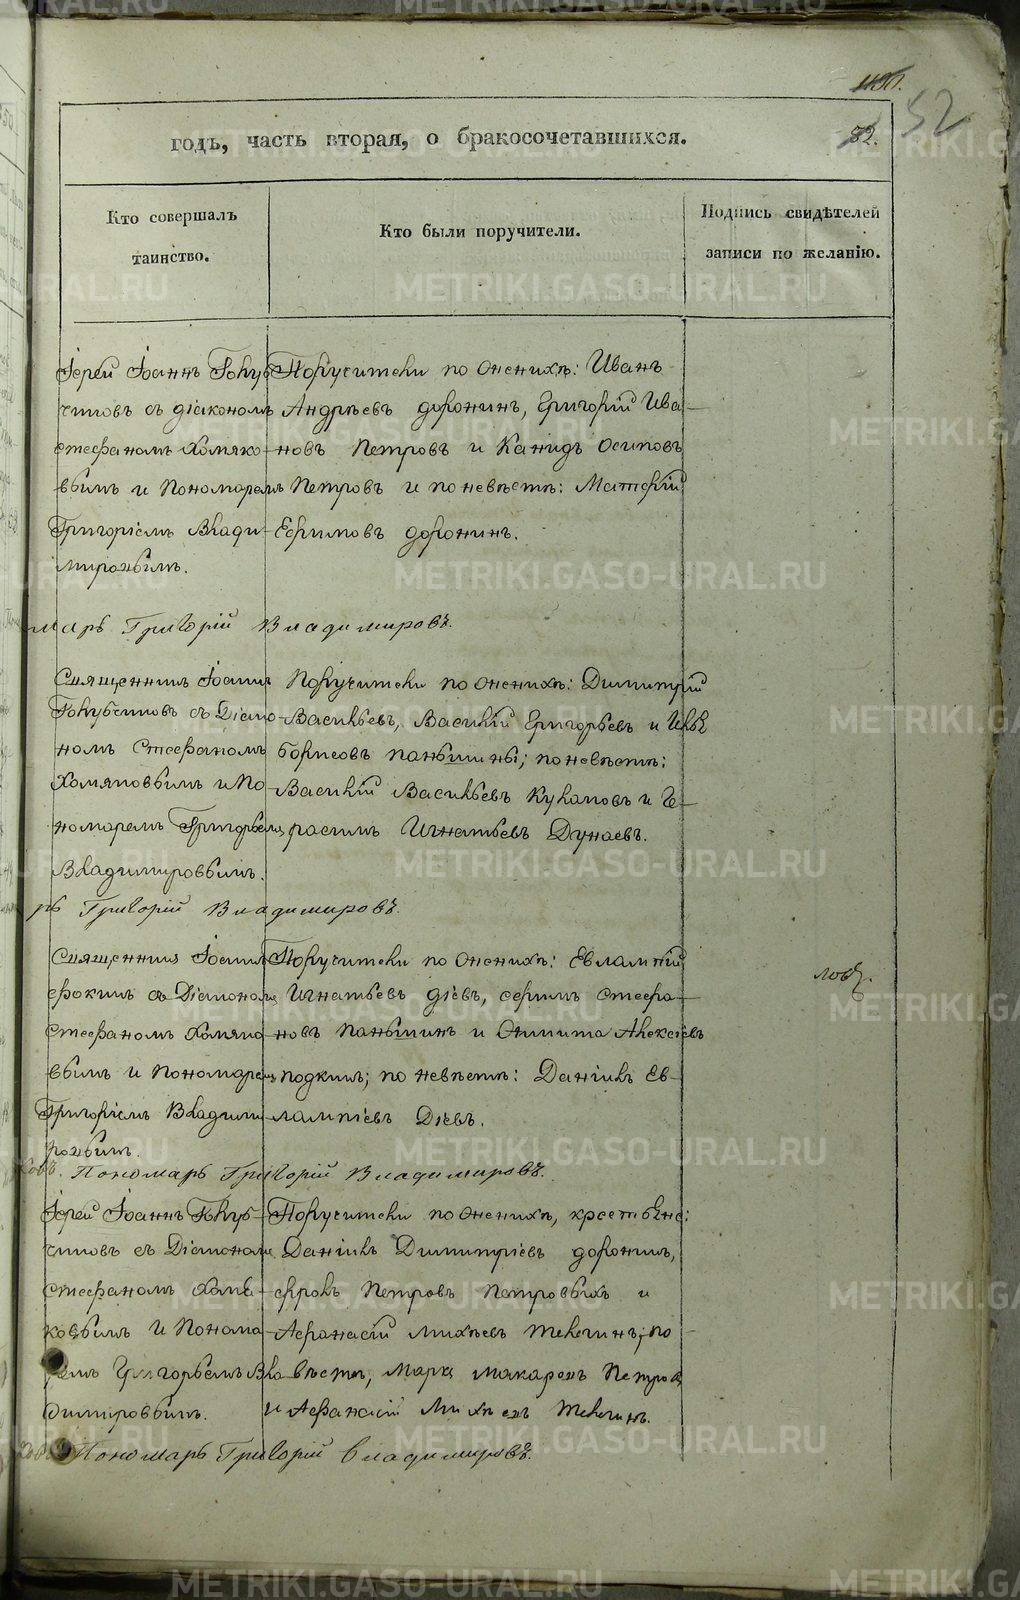 52
52.
годъ, часть вторая, о бракосочетавшихся.
Кто совершалъ
таинство.
Кто были поручители.
Подпись свидѣтелей
записи по желанію.
Іерей Іоаннъ Голуб-
чиковъ съ діакономъ
Стефаномъ Хомяко-
вымъ и Пономаремъ
Григоріемъ Влади-
мировымъ.
Поручители по женихѣ: Иванъ
Андрѣевъ Доронинъ, Григорій Ива-
новъ Петровъ и Осиповъ
Петровъ и по невѣстѣ:
Ефимовъ Доронинъ.
марь Григорій Владимировъ.
Священникъ Іоаннъ
Голубчиковъ съ Діако-
номъ Стефаномъ
Хомяковымъ и По-
номаремъ Григорьемъ
Владимировымъ.
Поручители по женихѣ: Димитрій
Васильевъ, Василій Григорьевъ и
Борисовъ Паньшины; по невѣстѣ:
Василій Васильевъ Кулаковъ и Ге-
расимъ Игнатьевъ Дунаевъ.
рь Григорій Владимировъ.
Священникъ Іоаннъ
Фокинъ съ Діакономъ
Стефаномъ Хомяко-
вымъ и Пономаремъ
Григоріемъ Владими-
ровымъ.
Поручители по женихѣ: Евлампій
Игнатьевъ Діевъ, Ефимъ Стефа-
новъ Паньшинъ и Алексѣевъ
по невѣстѣ: Даніилъ Ев-
лампіевъ Діевъ.
ковъ. Пономарь Григорій Владимировъ.
Іерей Іоаннъ Голуб-
чиковъ съ Діакономъ
Стефаномъ Хомя-
ковымъ и Понома-
ремъ Григорьемъ Вла-
димировымъ.
Поручители по женихѣ, крестьяне:
Даніилъ Димитріевъ Доронинъ,
Фролъ Петровъ Петровыхъ и
Афанасій Михѣевъ Телегинъ; по
вѣстѣ, Марка Макаровъ Петровъ
и Афанасій Михѣевъ Телегинъ.
Пономарь Григорій Владимировъ.
METRIKI.GASO-URAL.RU